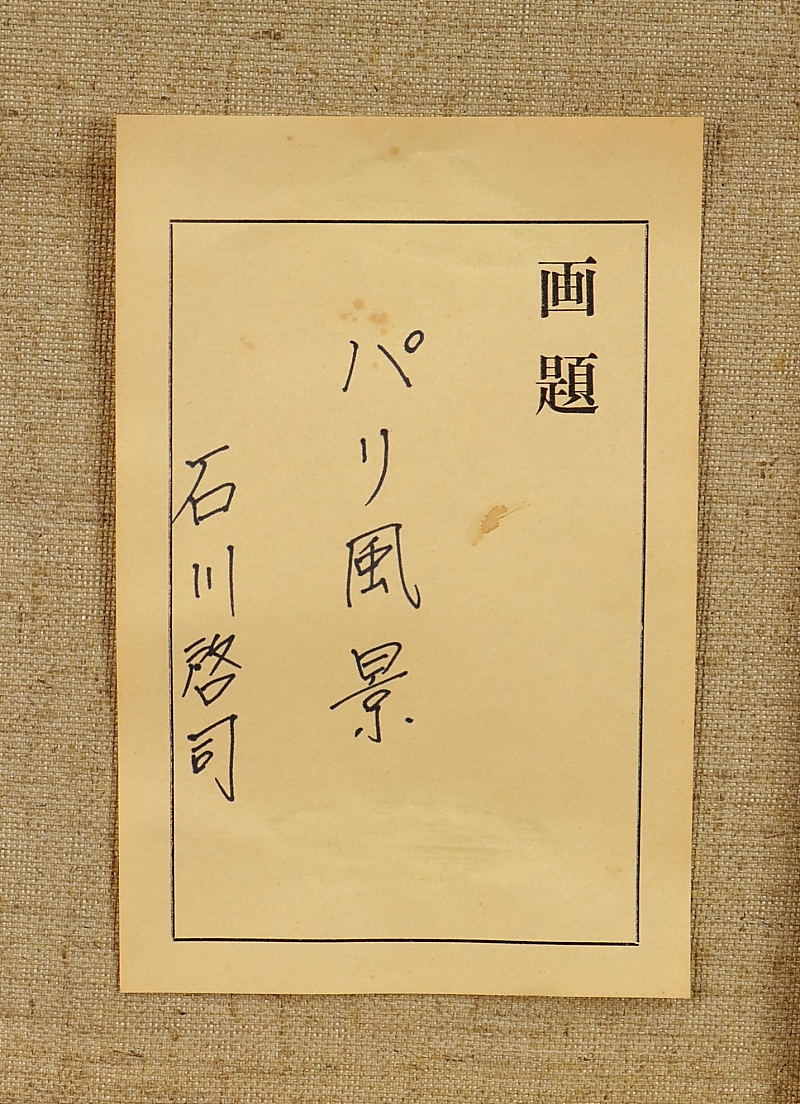 画題
パリ風景
石川啓司